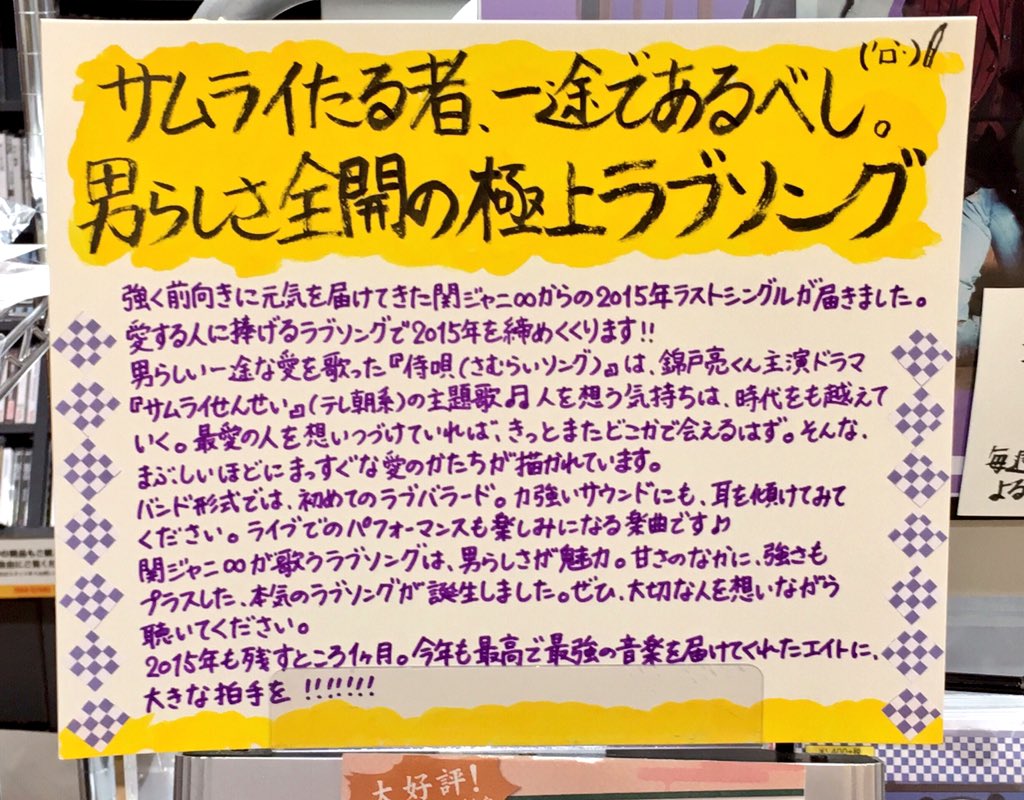 サムライたる者、一途であるべし。
男らしさ全開の極上ラブソング
強く前向きに元気を届けてきた関ジャニ∞からの2015年ラストシングルが届きました。
愛する人に捧げるラブソングで2015年を締めくくります!!
男らしい一途な愛を歌った『侍唄(さむらいソング)』は、錦戸亮くん主演ドラマ
『サムライせんせい』(テレ朝系)の主題歌♫人を想う気持ちは、時代をも越えて
いく。最愛の人を想いつづけていれば、きっとまたどこかで会えるはず。そんな、
まぶしいほどにまっすぐな愛のかたちが描かれています。
バンド形式では、初めてのラブバラード。力強いサウンドにも、耳を傾けてみて
ください。ライブでのパフォーマンスも楽しみになる楽曲です♪
関ジャニ∞が歌うラブソングは、男らしさが魅力。甘さのなかに、強さも
プラスした、本気のラブソングが誕生しました。ぜひ、大切な人を想いながら
聴いてください。
2015年も残すところ1ヶ月。今年も最高で最強の音楽を届けてくれたエイトに、
大きな拍手を!!!!!!!
大好評!
毎週
よる